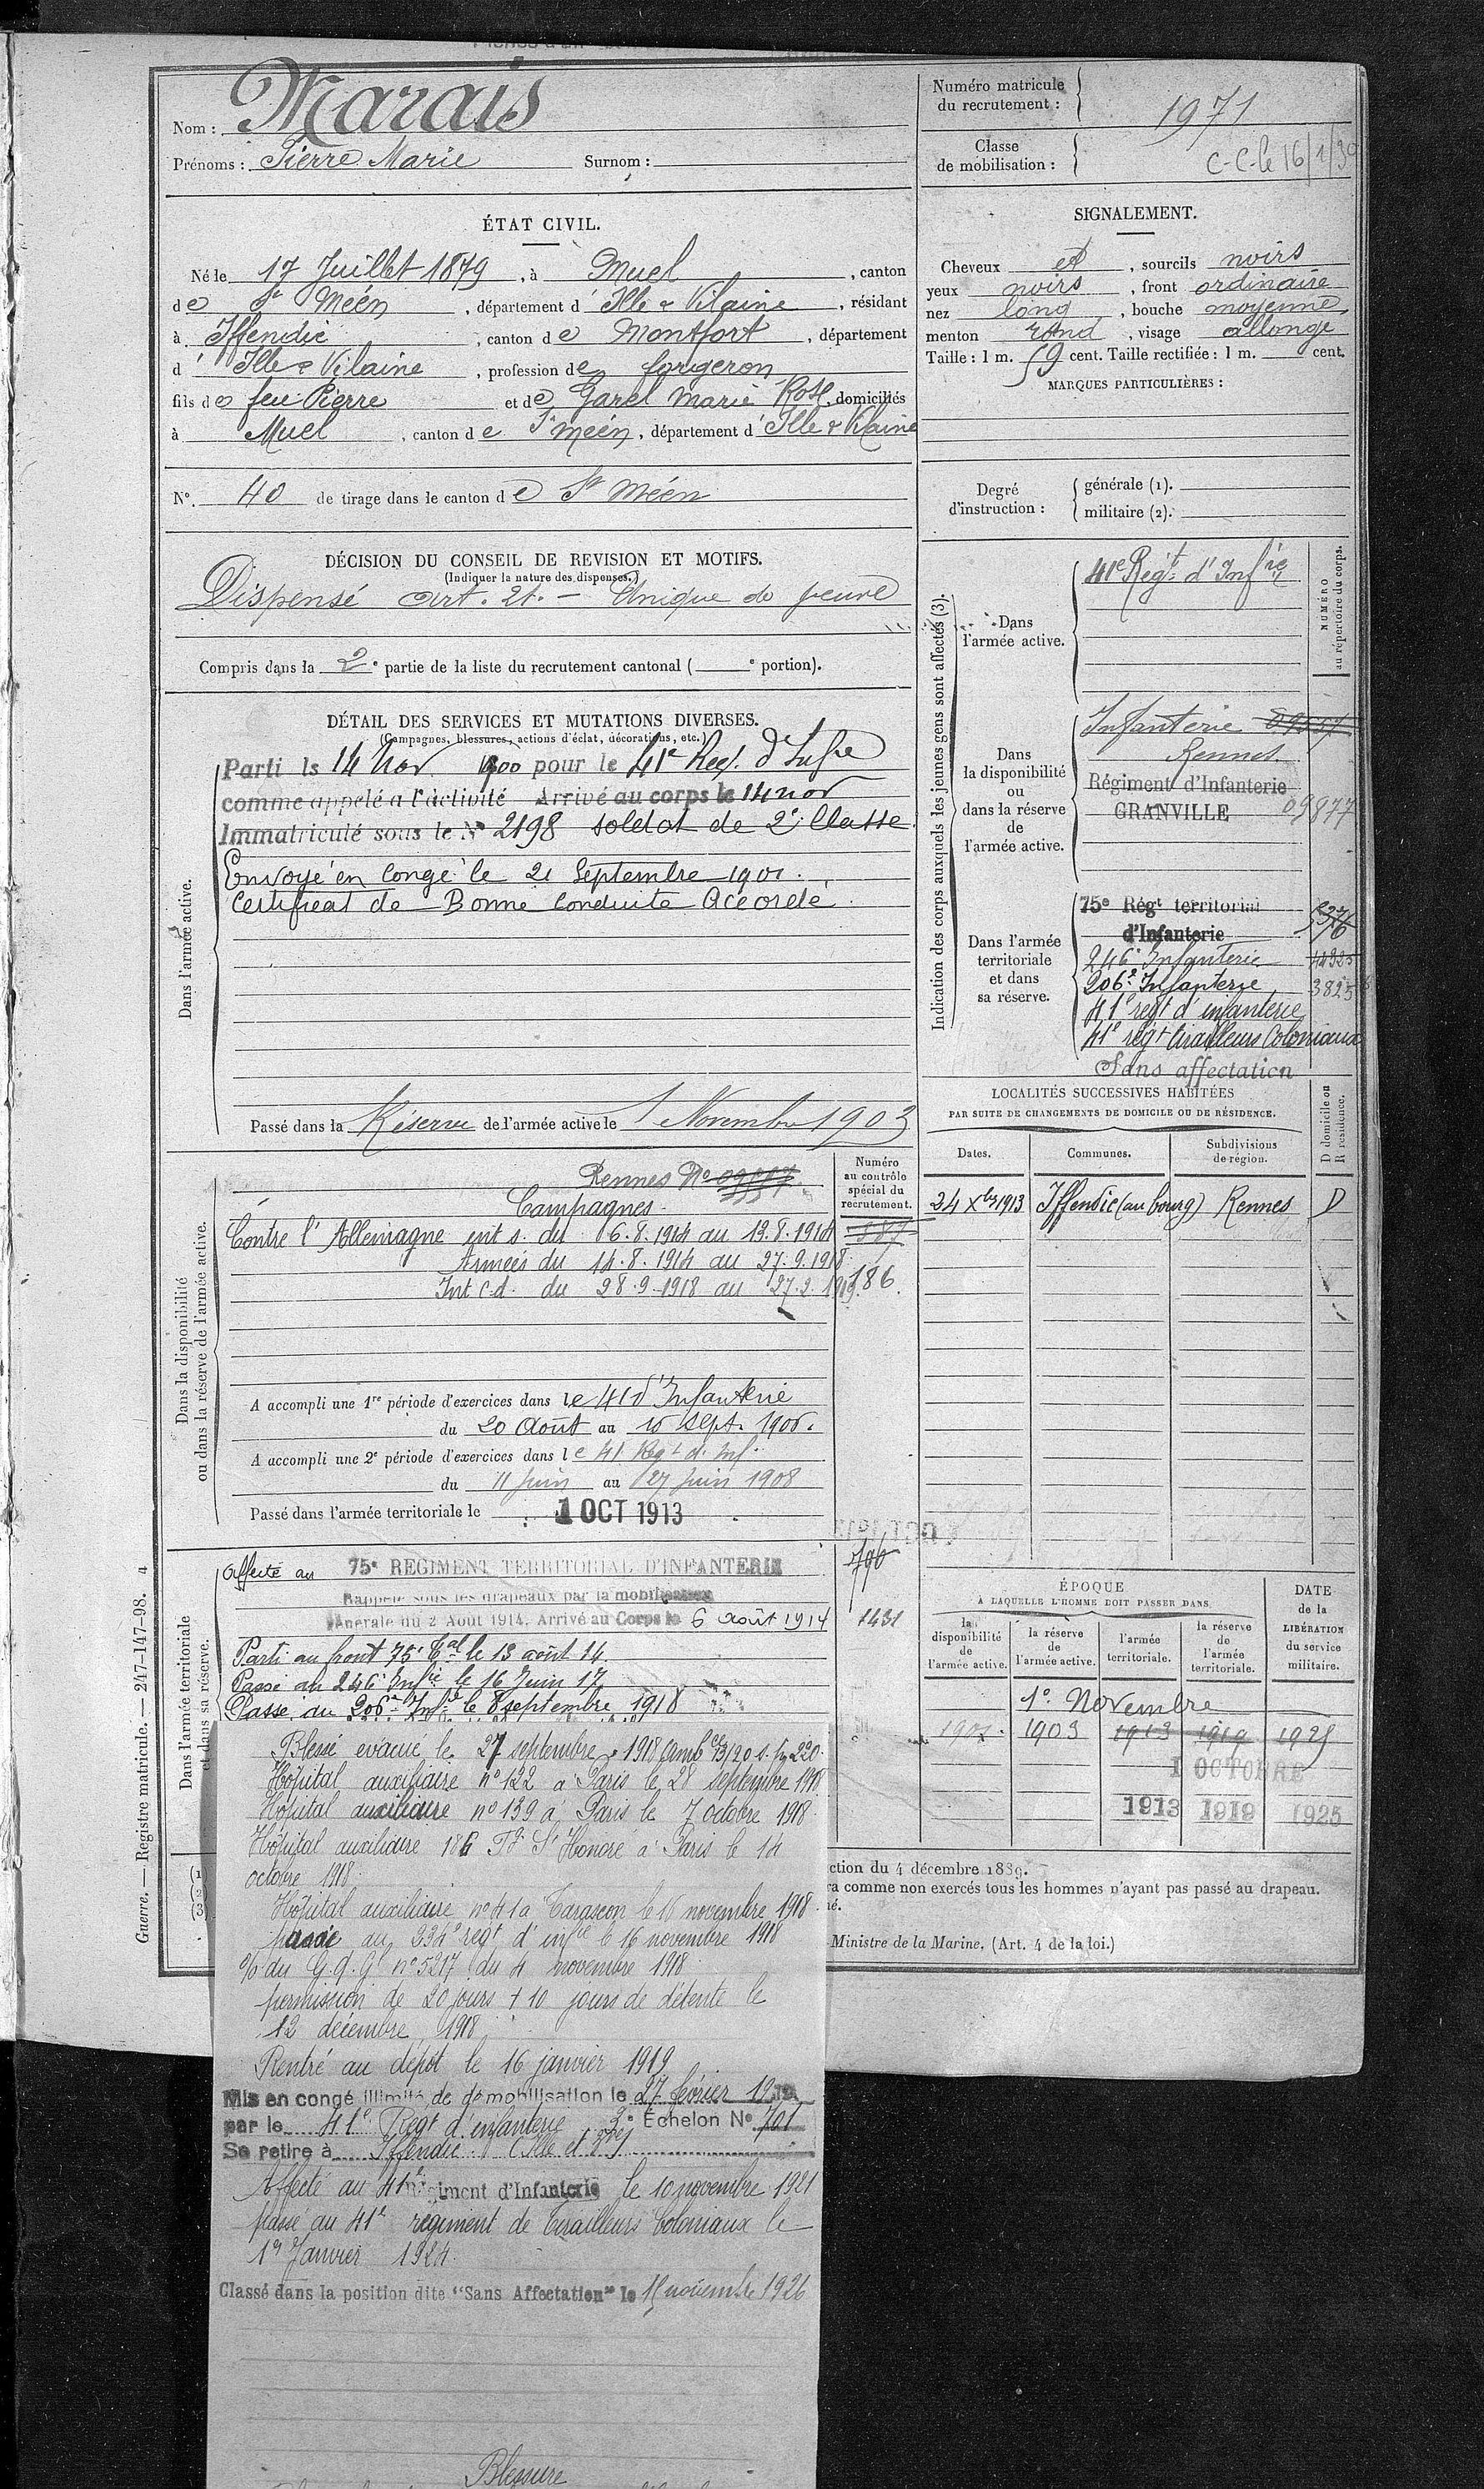 Nom : Marais
Prénoms : Pierre Marie Surnom :
Numéro matricule
du recrutement : 1971
Classe
de mobilisation : C-C-le 16/1/30
ÉTAT CIVIL.
Né le 17 Juillet 1879, à Muel, canton
de St Méen, département d'Ille & Vilaine, résidant
à Iffendic, canton de Montfort, département
d'Ille & Vilaine, profession de forgeron
fils de feu Pierre et de Garel Marie Rose, domiciliés
à Muel, canton de St Méen, département d'Ille & Vilaine
No. 40 de tirage dans le canton de St Méen
SIGNALEMENT.
Cheveux et, sourcils noirs
yeux noirs, front ordinaire
nez long, bouche moyenne
menton rond, visage allongé
Taille : 1 m. 59 cent. Taille rectifiée : 1 m. cent.
MARQUES PARTICULIÈRES :
Degré
d'instruction :
générale (1).
militaire (2).
DÉCISION DU CONSEIL DE REVISION ET MOTIFS.
(Indiquer la nature des dispenses.)
Dispensé art. 21. - Unique de veuve
Compris dans la 2e partie de la liste du recrutement cantonal ( e portion).
DÉTAIL DES SERVICES ET MUTATIONS DIVERSES.
(Campagnes, blessures, actions d'éclat, décorations, etc.)
Dans l'armée active.
Parti le 14 Nov. 1900 pour le 41e Reg. d'Infie
comme appelé à l'activité Arrivé au corps le 14 nov
Immatriculé sous le No 2198 soldat de 2e Classe.
Envoyé en congé le 21 Septembre 1901.
Certificat de Bonne Conduite Accordé.
Passé dans la Réserve de l'armée active le 1 Novembre 1903
Indication des corps auxquels les jeunes gens sont affectés (3).
NUMÉRO
au répertoire du corps.
Dans
l'armée active.
41e Régt d'Infie
Dans
la disponibilité
ou
dans la réserve
de
l'armée active.
Infanterie
Rennes
Régiment d'Infanterie
GRANVILLE 09877
Dans l'armée
territoriale
et dans
sa réserve.
75e Régt territorial
d'Infanterie
246e Infanterie
206e Infanterie 3825
41e regt d'infanterie
41e regt tirailleurs Coloniaux
Sans affectation
LOCALITÉS SUCCESSIVES HABITÉES
PAR SUITE DE CHANGEMENTS DE DOMICILE OU DE RÉSIDENCE.
Dates. Communes. Subdivisions
de région. D domicile ou
R résidence.
24 Xbre 1913 Iffendic (au bourg) Rennes D
Dans la disponibilité
ou dans la réserve de l'armée active.
Numéro
au contrôle
spécial du
recrutement.
Rennes No
Campagnes.
Contre l'Allemagne int s. du 6.8.1914 au 13.8.1914
Armées du 14.8.1914 au 27.9.1918
Int c.d. du 28.9.1918 au 27.2.1919. 186
A accompli une 1re période d'exercices dans le 41 d'Infanterie
du 20 Août au sept. 1906.
A accompli une 2e période d'exercices dans le 41 Regt d'Inf.
du 11 Juin au 27 Juin 1908
Passé dans l'armée territoriale le 1 OCT 1913
Dans l'armée territoriale
et dans sa réserve.
Affecté au 75e REGIMENT TERRITORIAL D'INFANTERIE
Rappelé sous les drapeaux par la mobilisation
générale du 2 Août 1914. Arrivé au Corps le 6 août 1914 1431
Parti au front 75e tal le 13 août 14.
Passé au 246e Infie le 16 Juin 17
Passé au 206e Infie le 8 septembre 1918
Blessé évacué le 27 septembre 1918 Amb 13/20 s. 220.
Hôpital auxiliaire no 122 à Paris le 28 septembre 1918
Hôpital auxiliaire no 139 à Paris le 7 octobre 1918
Hôpital auxiliaire 186 Fg St Honoré à Paris le 14
octobre 1918.
Hôpital auxiliaire no 41 à Tarascon le 16 novembre 1918.
passé au 234e regt d'infie le 16 novembre 1918
o/o du G.Q.G no 5217 du 4 novembre 1918
permission de 20 jours + 10 jours de détente le
12 décembre 1918.
Rentré au dépôt le 16 janvier 1919
Mis en congé illimité de démobilisation le 27 février 1919
par le 41e Regt d'infanterie 3e Échelon No 701
Se retire à Iffendic (Ille et Vne)
Affecté au 41e Régiment d'Infanterie le 10 novembre 1921
passé au 41e régiment de Tirailleurs Coloniaux le
1er Janvier 1924.
Classé dans la position dite "Sans Affectation" le 15 novembre 1926
Blessure
ÉPOQUE
À LAQUELLE L'HOMME DOIT PASSER DANS
la
disponibilité
de
l'armée active.
la réserve
de
l'armée active.
l'armée
territoriale.
la réserve
de
l'armée
territoriale.
DATE
de la
LIBÉRATION
du service
militaire.
1er Novembre
1901. 1903 1913 1919 1925
1 OCTOBRE
1913 1919 1925
ction du 4 décembre 1889.
ra comme non exercés tous les hommes n'ayant pas passé au drapeau.
né.
Ministre de la Marine, (Art. 4 de la loi.)
Guerre. — Registre matricule. — 247-147-98. 4